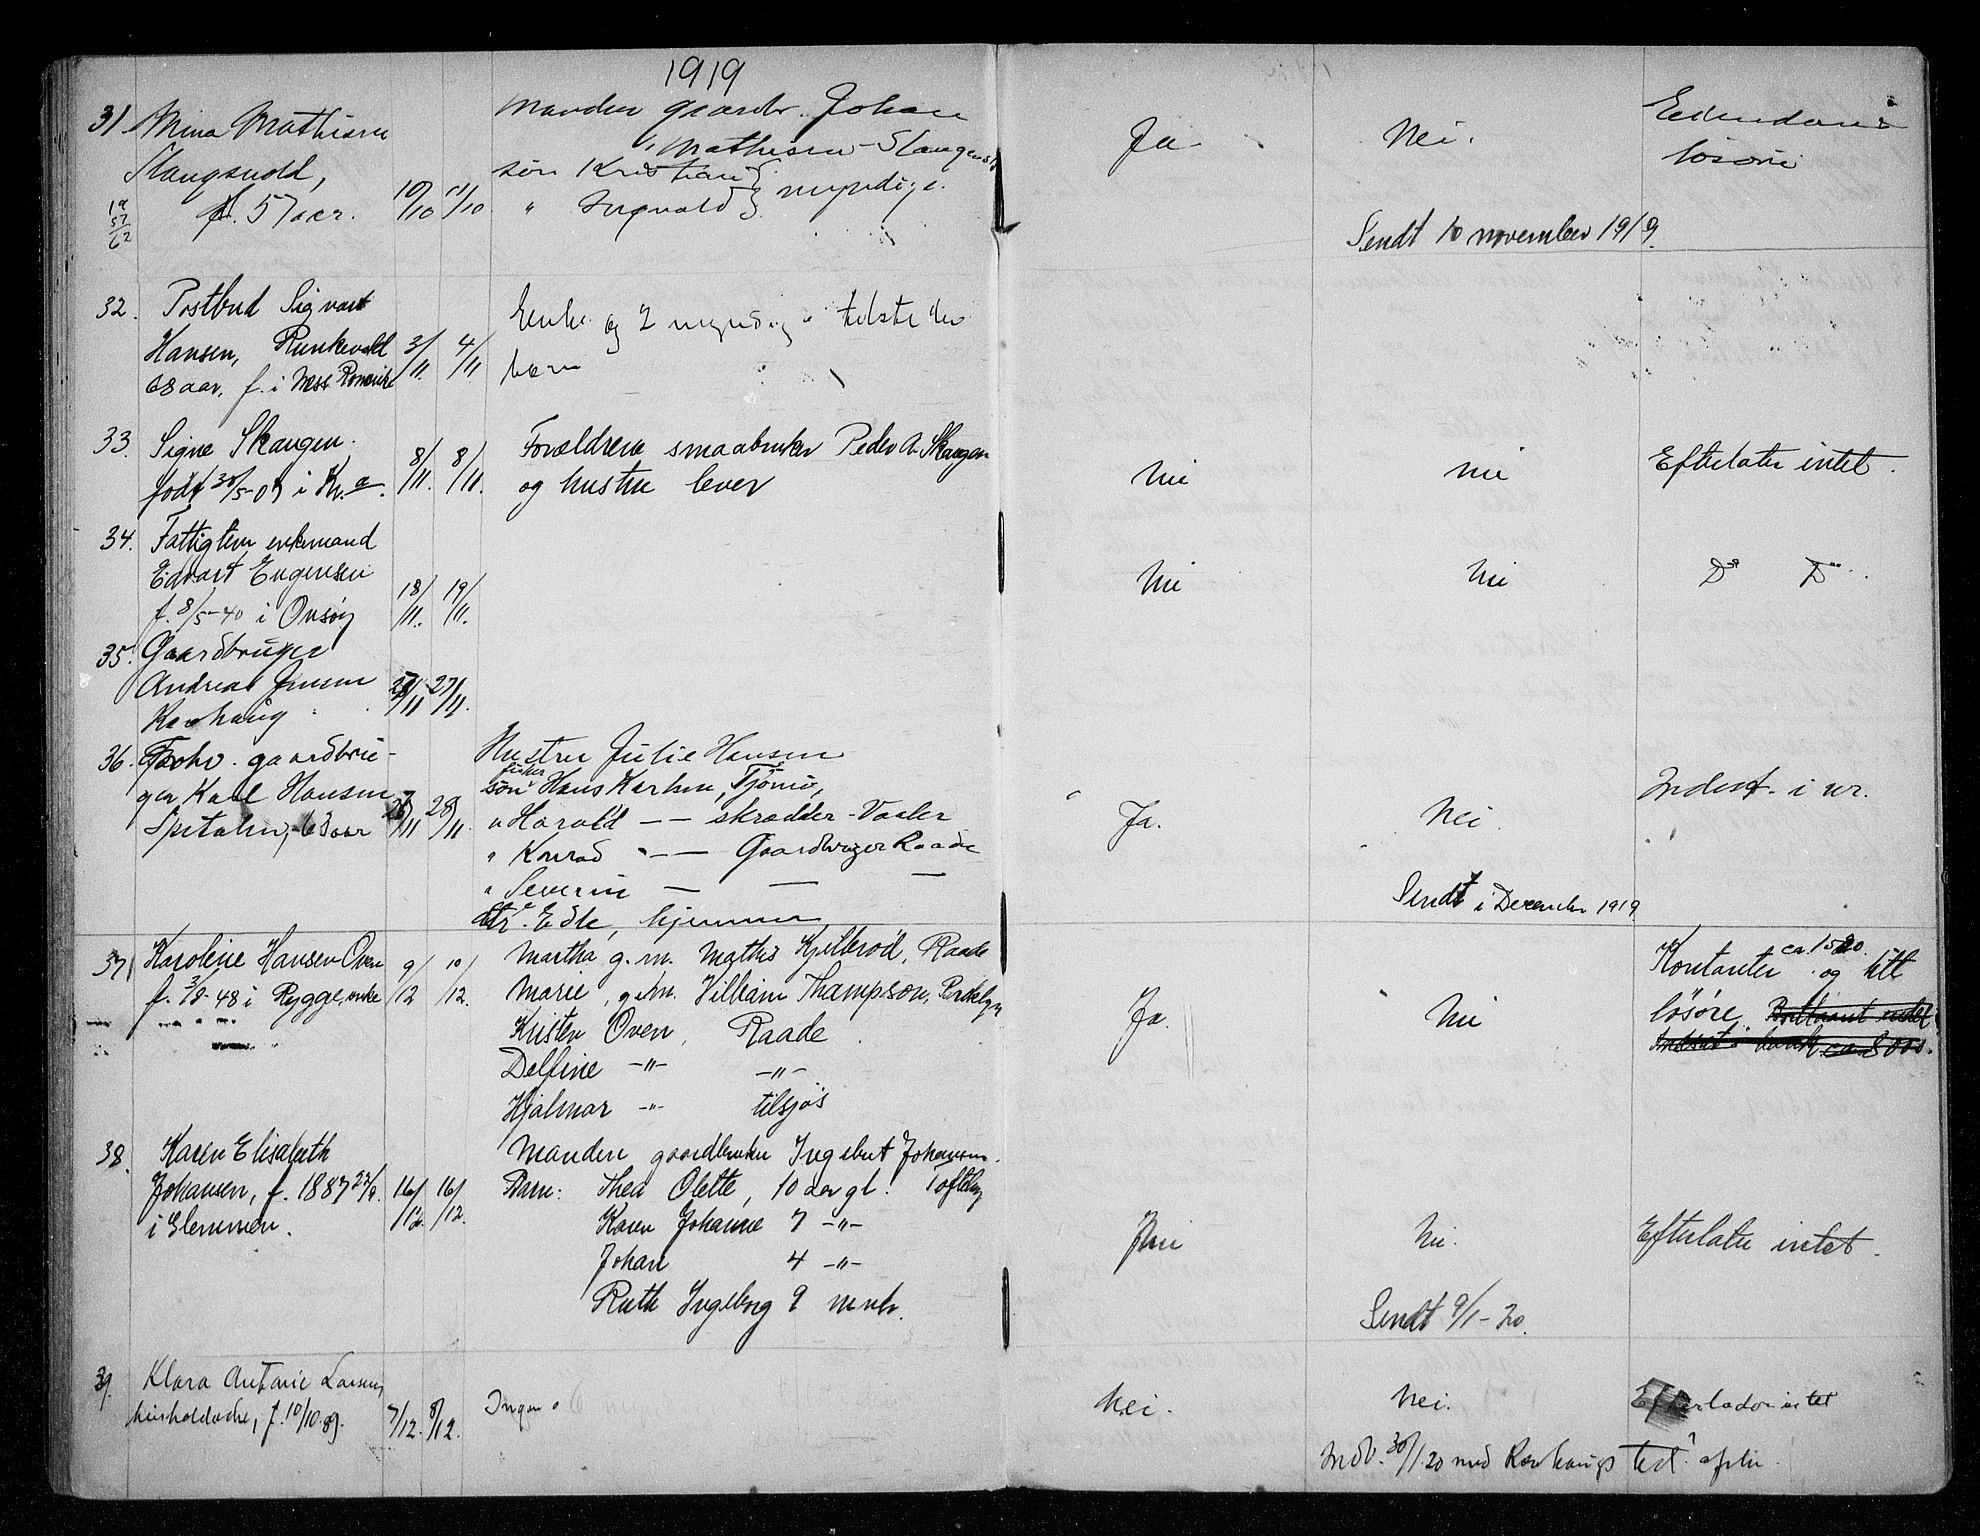 1919
31. Mina Mathisen
Slangsvold,
f. 57 aar.
19
57
62
10/10 11/10
Manden gaardbr. Johan
Mathisen - Slangsv.
søn Kristian }
" Ingvald } myndige.
Ja
Nei.
Eiendom &
løsøre
Sendt 10 november 1919.
32. Postbud Sigvart
Hansen, Runkevold
68 aar, f. i Næss Romerike
3/11. 4/11
Enke og 2 myndige tilstede
børn
33. Signe Skaugen.
født 30/5-07 i Kr.a.
8/11. 8/11.
Forældrene smaabruker Peder A. Skaugen
og hustru lever
Nei
Nei
Efterlater intet.
34. Fattiglem enkemand
Edvart Evgensen
f. 8/5-40 i Onsøy
18/11. 19/11.
Nei
Nei
Do Do.
35. Gaardbruger
Andreas Jensen
Karlshaug
27/11.
36. Forhv. gaardbru-
ger Karl Hansen
Spetalen, 63 aar
28/11.
Hustru Julie Hansen
søn fisker Hans Karlsen, Tjømø,
" Harald -- skrædder - Vaaler
" Konrad -- Gaardbruger Raade
" Severin — — —
dtr. Edle, hjemme
Ja.
Nei.
Indest. i
Sendt i December 1919
37. Karoline Hansen Oven
f. 3/8-48 i Rygge, enke
9/12 10/12.
Martha, g. m. Mathis Kjellerød, Raade
Marie, g. m. Villiam Thampson, Broklyn
Kristen Oven, Raade
Delfine -"- -"-
Hjalmar -"- tilsjøs
Ja.
Nei
Kontanter ca. 1500. og litt
løsøre
Indsat i bank ca 8000.
38. Karen Elisabeth
Johansen, f. 1887 22/9.
i Glemmen.
16/12. 16/12.
Manden gaardbruker Ingebret Johansen.
Barn: Thea Olette, 10 aar gl. Tofteberg
Karen Johanne 7 -"-
Johan 4 -"-
Ruth Ingeborg 9 mndr.
Nei
Nei.
Efterlater intet.
Sendt 9/1-20.
39. Klara Antonie Larsen,
husholderske, f. 10/10.89.
7/12. 8/12.
Ingen.
Nei.
Nei.
Efterlader intet
Indb. 30/1.20 med